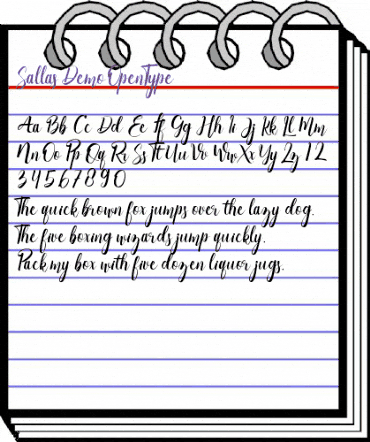 Sallas Demo OpenType
Aa Bb Cc Dd Ee Ff Gg Hh Ii Jj Kk Ll Mm
Nn Oo Pp Qq Rr Ss Tt Uu Vv Ww Xx Yy Zz 1 2
3 4 5 6 7 8 9 0
The quick brown fox jumps over the lazy dog.
The five boxing wizards jump quickly.
Pack my box with five dozen liquor jugs.